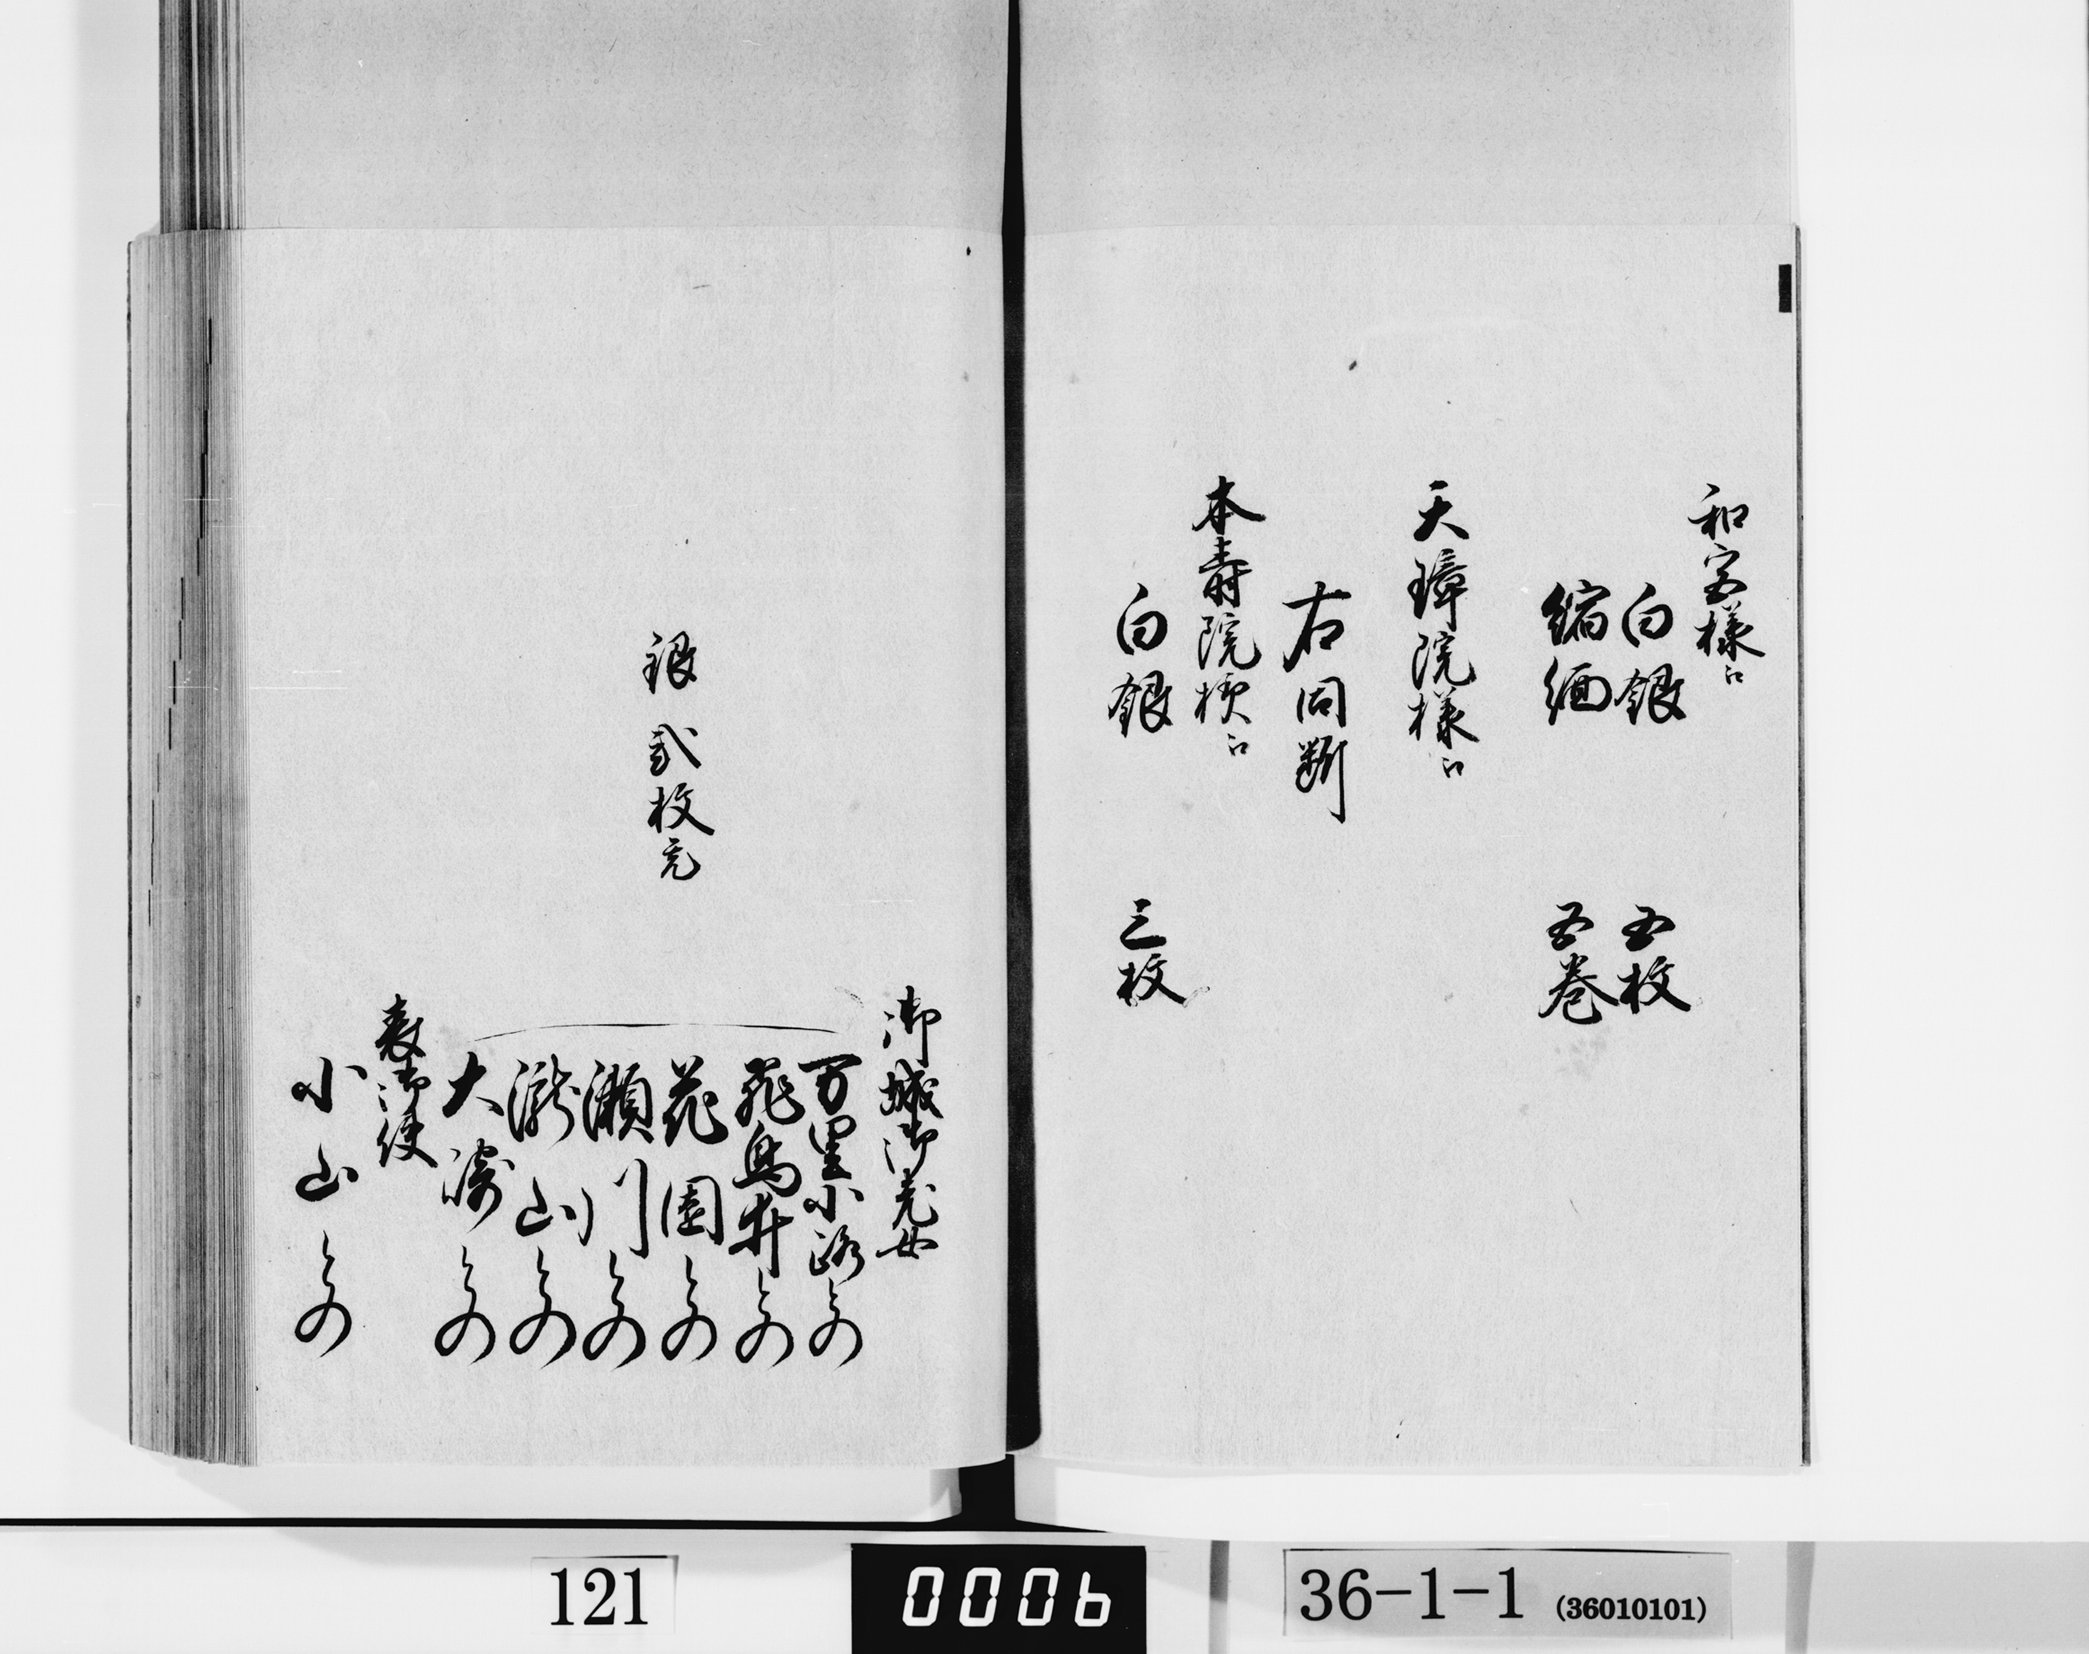 和宮様江
白銀 五枚
縮緬 五巻
天璋院様江
右同断
本寿院様江
白銀 三枚
御城御老女
万里小路との
飛鳥井との
花園との
瀬川との
瀧山との
銀弐枚充
大濤との
表御使
小山との
121
0006
36-1-1 (36010101)